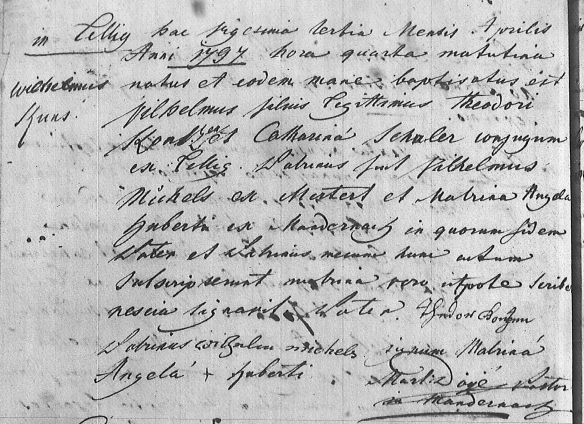 in Tellig hac vigesima tertia Mensis Aprilis
Anni 1797 hora quarta matutina
Wilhelmus natus et eodem mane baptisatus est
Kuns. Vilhelmus filius legittimus Theodori
et Catharina Schuler conjugum
ex Tellig Patrinus fuit Vilhelmus
Michels ex Mestert et Matrina Angela
Huberti ex Mandernach in quorum fidem
Pater et Patrinus mecum hunc actum
Subscripserunt matrina vero utpote Scribe
nescia signavit Pater.
Patrinus wilhelm michels signum Matrinä
Angelä + Huberti
Pastor
in Mandernach